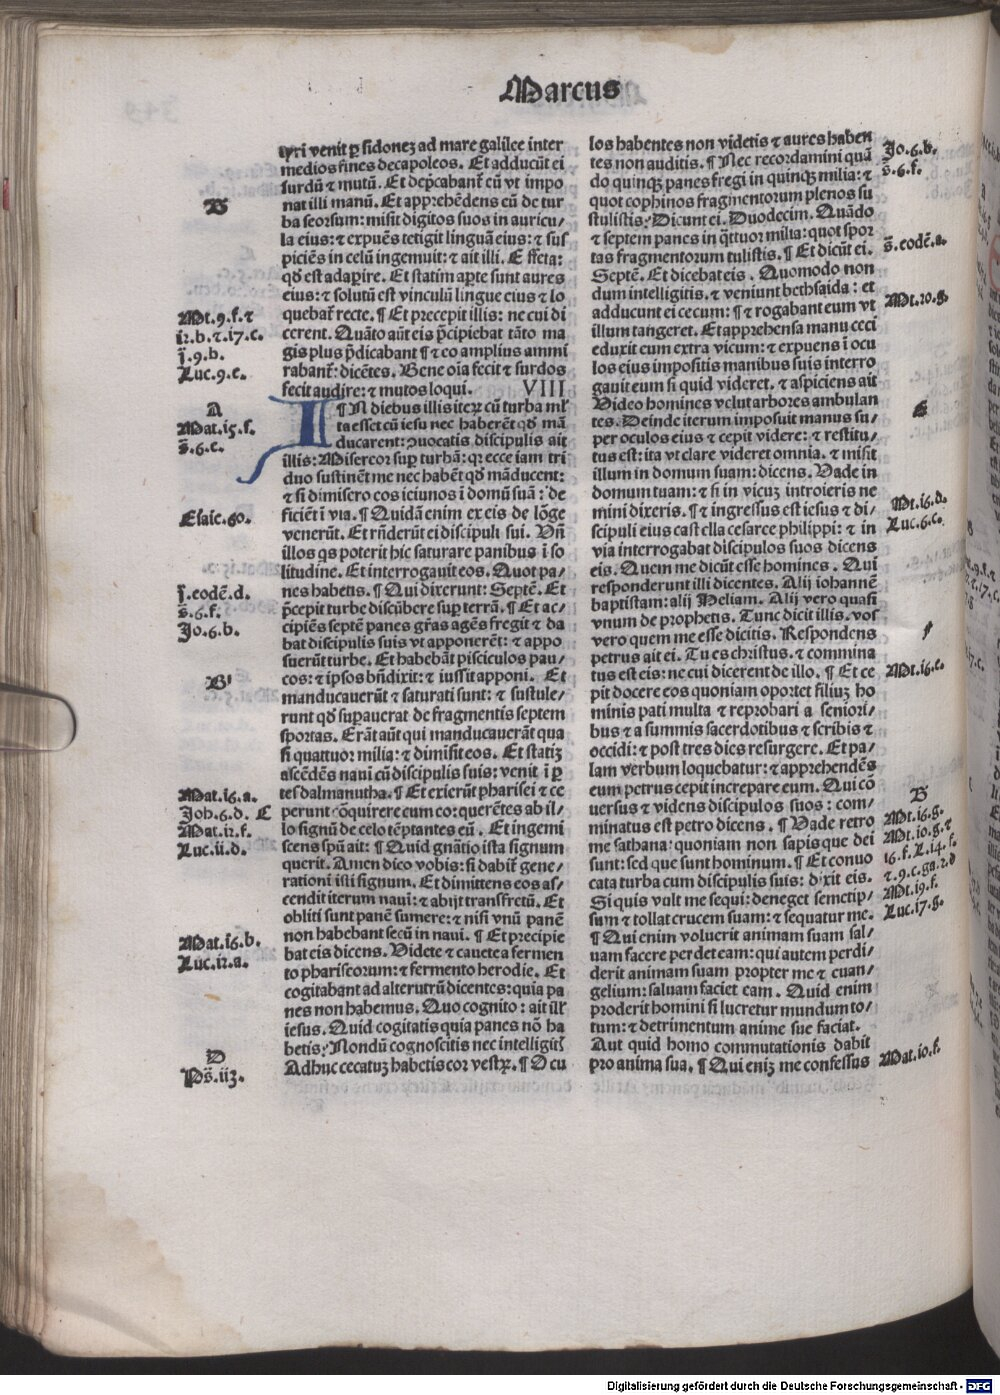 Marcus
tyri venit ꝑ sidoneꝫ ad mare galilee inter
medios fines decapoleos. Et adducūt ei
surdū ⁊ mutū. Et dep̄cabant᷑ eū vt impo
nat illi manū. Et apprehēdens eū de tur
ba seorsum: misit digitos suos in auricu/
la eius: ⁊ expuēs tetigit linguā eius: ⁊ sus
piciēs in celū ingemuit: ⁊ ait illi. Effeta:
qd̄ est adaꝑire. Et statim aꝑte sunt aures
eius: ⁊ solutū est vinculū lingue eius ⁊ lo
quebat᷑ recte. ¶ Et precepit illis: ne cui di
cerent. Quāto aūt eis p̄cipiebat tāto ma
gis plus p̄dicabant ¶ ⁊ eo amplius ammi
rabant᷑: dicētes. Bene oīa fecit ⁊ surdos
fecit audire: ⁊ mutos loqui. VIII
I ¶ N diebus illis iteꝝ cū turba ml̄
ta esset cū iesu nec haberēt qd̄ mā
ducarent: ꝯuocatis discipulis ait
illis: Misereor suꝑ turbā: qꝛ ecce iam tri
duo sustinēt me nec habēt qd̄ māducent:
⁊ si dimisero eos ieiunos ī domū suā: de
ficiēt ī via. ¶ Quidā enim ex eis de lōge
venerūt. Et rn̄derūt ei discipuli sui. Vn̄
illos qs poterit hic saturare panibus ī so
litudine. Et interrogauit eos. Quot pa/
nes habetis. ¶ Qui dixerunt: Septē. Et
p̄cepit turbe discūbere suꝑ terrā. ¶ Et ac/
cipiēs septē panes gr̄as agēs fregit ⁊ da
bat discipulis suis vt apponerēt: ⁊ appo
suerūt turbe. Et habebāt pisciculos pau/
cos: ⁊ ipsos bn̄dixit: ⁊ iussit apponi. Et
manducauerūt ⁊ saturati sunt: ⁊ sustule/
runt qd̄ suꝑauerat de fragmentis septem
sportas. Erāt aūt qui manducauerāt qua
si quattuor milia: ⁊ dimisit eos. Et statiꝫ
ascēdēs nauī cū discipulis suis: venit ī ꝑ
tes dalmanutha. ¶ Et exierūt pharisei ⁊ ce
perunt ꝯquirere cum eo: querētes ab il/
lo signū de celo tēptantes eū. Et ingemi
scens spū ait: ¶ Quid gn̄atio ista signum
querit. Amen dico vobis: si dabit᷑ gene/
rationi isti signum. Et dimittens eos as/
cendit iterum nauī: ⁊ abijt transfretū. Et
obliti sunt panē sumere: ⁊ nisi vnū panē
non habebant secū in naui. ¶ Et precipie
bat eis dicens. Videte ⁊ cauete a fermen
to phariseorum: ⁊ fermento herodie. Et
cogitabant ad alterutrū dicentes: quia pa
nes non habemus. Quo cognito: ait ill̄
iesus. Quid cogitatis quia panes nō ha
betis: Nondū cognoscitis nec intelligit᷑
Adhuc cecatuꝫ habetis cor vestꝝ. ¶ Ocu
los habentes non videtis ⁊ aures haben
tes non auditis. ¶ Nec recordamini quā
do quinqꝫ panes fregi in quinqꝫ milia: ⁊
quot cophinos fragmentorum plenos su
stulistis: Dicunt ei. Duodecim. Quādo
⁊ septem panes in q̄ttuor milia: quot spor
tas fragmentorum tulistis. ¶ Et dicūt ei.
Septē. Et dicebat eis. Quomodo non
dum intelligitis. ⁊ veniunt bethsaida: et
adducunt ei cecum: ¶ ⁊ rogabant eum vt
illum tangeret. Et apprehensa manu ceci
eduxit eum extra vicum: ⁊ expuens ī ocu
los eius impositis manibus suis interro
gauit eum si quid videret. ⁊ aspiciens ait
Video homines velut arbores ambulan
tes. Deinde iterum imposuit manus su/
per oculos eius ⁊ cepit videre: ⁊ restitu/
tus est: ita vt clare videret omnia. ⁊ misit
illum in domum suam: dicens. Vade in
domum tuam: ⁊ si in vicuꝫ introieris ne
mini dixeris. ¶ ⁊ ingressus est iesus ⁊ di/
scipuli eius castella cesaree philippi: ⁊ in
via interrogabat discipulos suos dicens
eis. Quem me dicūt esse homines. Qui
responderunt illi dicentes. Alij iohannē
baptistam: alij Heliam. Alij vero quasi
vnum de prophetis. Tunc dicit illis. vos
vero quem me esse dicitis. Respondens
petrus ait ei. Tu es christus. ⁊ commina
tus est eis: ne cui dicerent de illo. ¶ Et ce
pit docere eos quoniam oportet filiuꝫ ho
minis pati multa ⁊ reprobari a seniori/
bus ⁊ a summis sacerdotibus ⁊ scribis ⁊
occidi: ⁊ post tres dies resurgere. Et pa/
lam verbum loquebatur: ⁊ apprehendēs
eum petrus cepit increpare eum. Qui cō
uersus ⁊ videns discipulos suos: com/
minatus est petro dicens. ¶ Vade retro
me sathana: quoniam non sapis que dei
sunt: sed que sunt hominum. ¶ Et conuo
cata turba cum discipulis suis: dixit eis.
Si quis vult me sequi: deneget semetip/
sum ⁊ tollat crucem suam: ⁊ sequatur me.
¶ Qui enim voluerit animam suam sal/
uam facere perdet eam: qui autem perdi/
derit animam suam propter me ⁊ euan/
gelium: saluam faciet eam. Quid enim
proderit homini si lucretur mundum to/
tum: ⁊ detrimentum anime sue faciat.
Aut quid homo commutationis dabit
pro anima sua. ¶ Qui eniꝫ me confessus
B
Mt.9.f.⁊
12.b.⁊.17.c.
j̄.9.b.
Luc.9.e.
A
Mat.15.f.
s̄.6.e.
Esaie.60.
j̄.eodē.d.
s̄.6.f.
Jo.6.b.
B
Mat.16.a.
Joh.6.d. C
Mat.12.f.
Luc.11.d.
Mat.16.b.
Luc.12.a.
D
Ps̄.113.
Jo.6.b.
s̄.6.f.
s̄.eodē.a.
Mt.20.g.
Mt.16.d.
Luc.6.c.
Mt.16.e.
Mt.16.g.
Mt.10.g.⁊
16.f.L.14.f.
⁊.9.c.ga.2.d
Mt.19.f.
Luc.17.g.
Mat.10.f.
Digitalisierung gefördert durch die Deutsche Forschungsgemeinschaft - DFG